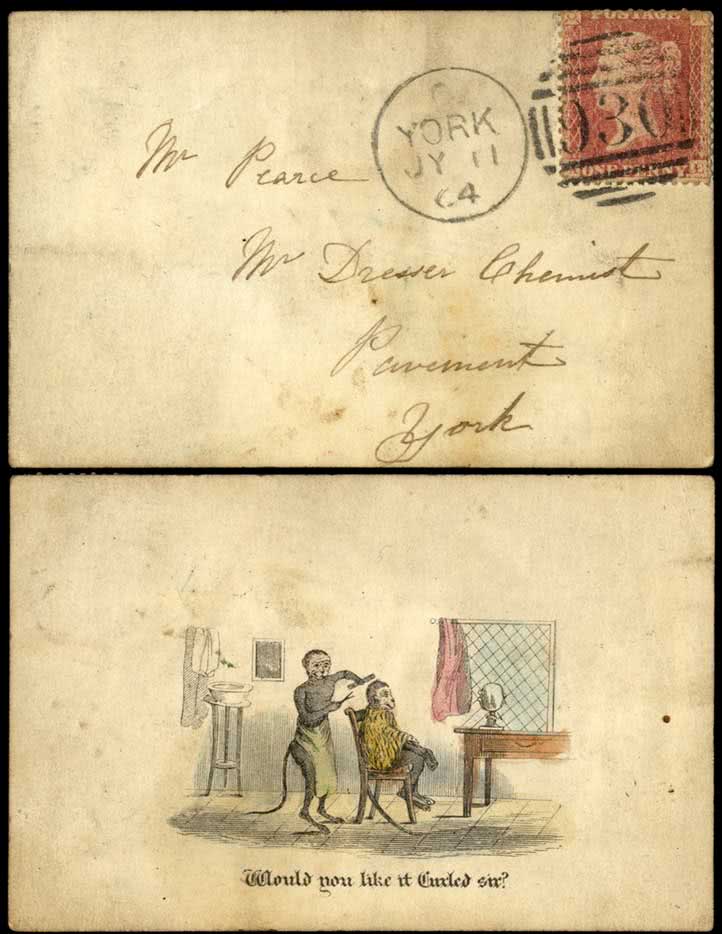 POSTAGE
930
ONE PENNY
YORK
JY 11
64
Mr Pearce
Mr Dresser Chemist
Pavement
York
Would you like it Curled sir?